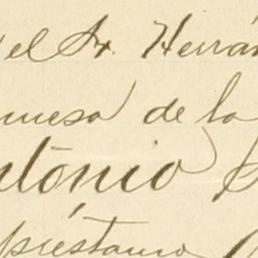 el Sr. Herrán
mesa de la
ntonio
préstamo